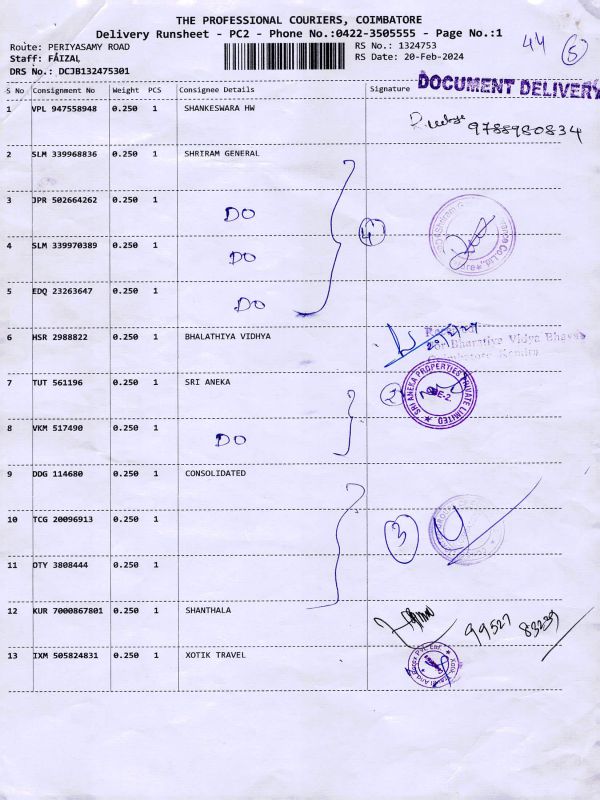 THE PROFESSIONAL COURIERS, COIMBATORE
Delivery Runsheet - PC2 - Phone No.:0422-3505555 - Page No.:1
Route: PERIYASAMY ROAD
Staff: FAIZAL
DRS No.: DCJB132475301
RS No.: 1324753
RS Date: 20-Feb-2024
44 5
DOCUMENT DELIVERY
S No Consignment No Weight PCS Consignee Details Signature
1 VPL 947558948 0.250 1 SHANKESWARA HW
9788980834
2 SLM 339968836 0.250 1 SHRIRAM GENERAL
3 JPR 502664262 0.250 1 DO
4
4 SLM 339970389 0.250 1 DO
5 EDQ 23263647 0.250 1 DO
6 HSR 2988822 0.250 1 BHALATHIYA VIDHYA
For Bharatiya Vidya Bhavan
7 TUT 561196 0.250 1 SRI ANEKA
2
SRI ANEKA PROPERTIES PRIVATE LIMITED
8 VKM 517490 0.250 1 DO
9 DDG 114680 0.250 1 CONSOLIDATED
10 TCG 20096913 0.250 1
3
11 OTY 3808444 0.250 1
12 KUR 7000867801 0.250 1 SHANTHALA
99527 83239
13 IXM 505824831 0.250 1 XOTIK TRAVEL